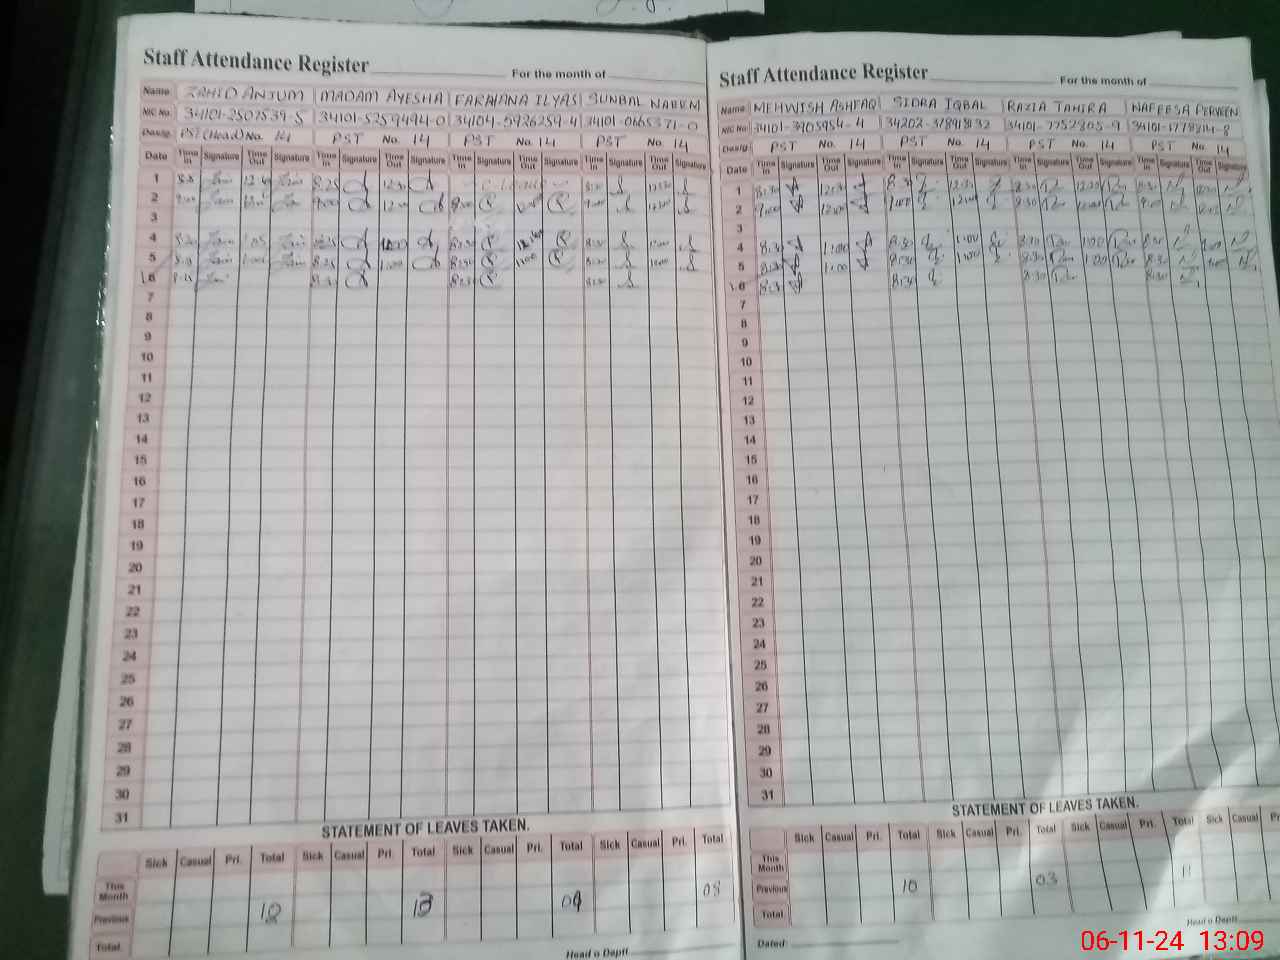 Staff Attendance Register
For the month of
Name ZAHID ANJUM MADAM AYESHA FARAHANA ILYAS SUNBAL NAEEM
NIC No. 34101-2507539-5 34101-5259494-0 34104-5926259-4 34101-0665371-0
Desig. PST (Head) No. 14 PST No. 14 PST No. 14 PST No. 14
Date Time In Signature Time Out Signature Time In Signature Time Out Signature Time In Signature Time Out Signature Time In Signature Time Out Signature
1 8:25 12:30 C. Leave 8:30 12:30
2 9:00 12:00 9:00 12:00
3
4 8:25 1:00 8:30
5 8:25 1:00 8:30 1:00 8:30 1:00
6 8:30 8:30 8:30
7
8
9
10
11
12
13
14
15
16
17
18
19
20
21
22
23
24
25
26
27
28
29
30
31
STATEMENT OF LEAVES TAKEN.
Sick Casual Pri. Total Sick Casual Pri. Total Sick Casual Pri. Total Sick Casual Pri. Total
This Month
Previous 12 13 04 08
Total
Head o Deptt
Staff Attendance Register
For the month of
Name MEHWISH ASHFAQ SIDRA IQBAL RAZIA TAHIRA NAFEESA PERVEEN
NIC No. 34101-3905954-4 34202-318918132 34101-7752805-9 34101-1778214-8
Desig. PST No. 14 PST No. 14 PST No. 14 PST No. 14
Date Time In Signature Time Out Signature Time In Signature Time Out Signature Time In Signature Time Out Signature Time In Signature Time Out Signature
1 8:30 12:30 8:30 12:30 8:30 12:30 8:30
2 9:00 12:00 9:00 12:00 9:30 12:00 9:00
3
4 8:30 1:00 8:30 1:00 8:30 1:00 8:30 1:00
5 8:30 1:00 8:30 1:00 8:30 1:00 8:30 1:00
6 8:30 8:30 8:30 8:30
7
8
9
10
11
12
13
14
15
16
17
18
19
20
21
22
23
24
25
26
27
28
29
30
31
STATEMENT OF LEAVES TAKEN.
Sick Casual Pri. Total Sick Casual Pri. Total Sick Casual Pri. Total Sick Casual Pri.
This Month
Previous 10 03 11
Total
Dated:
Head o Deptt
06-11-24 13:09